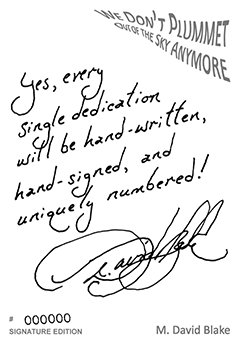 WE DON'T PLUMMET
OUT OF THE SKY ANYMORE
Yes, every
single dedication
will be hand-written,
hand-signed, and
uniquely numbered!
M. David Blake
# 000000
SIGNATURE EDITION
M. David Blake